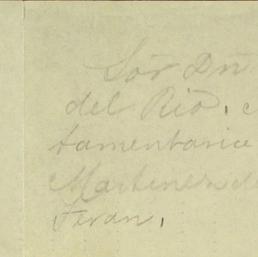 Sor Dn
del Rio, c
tamentaria
Martinez de
Teran,